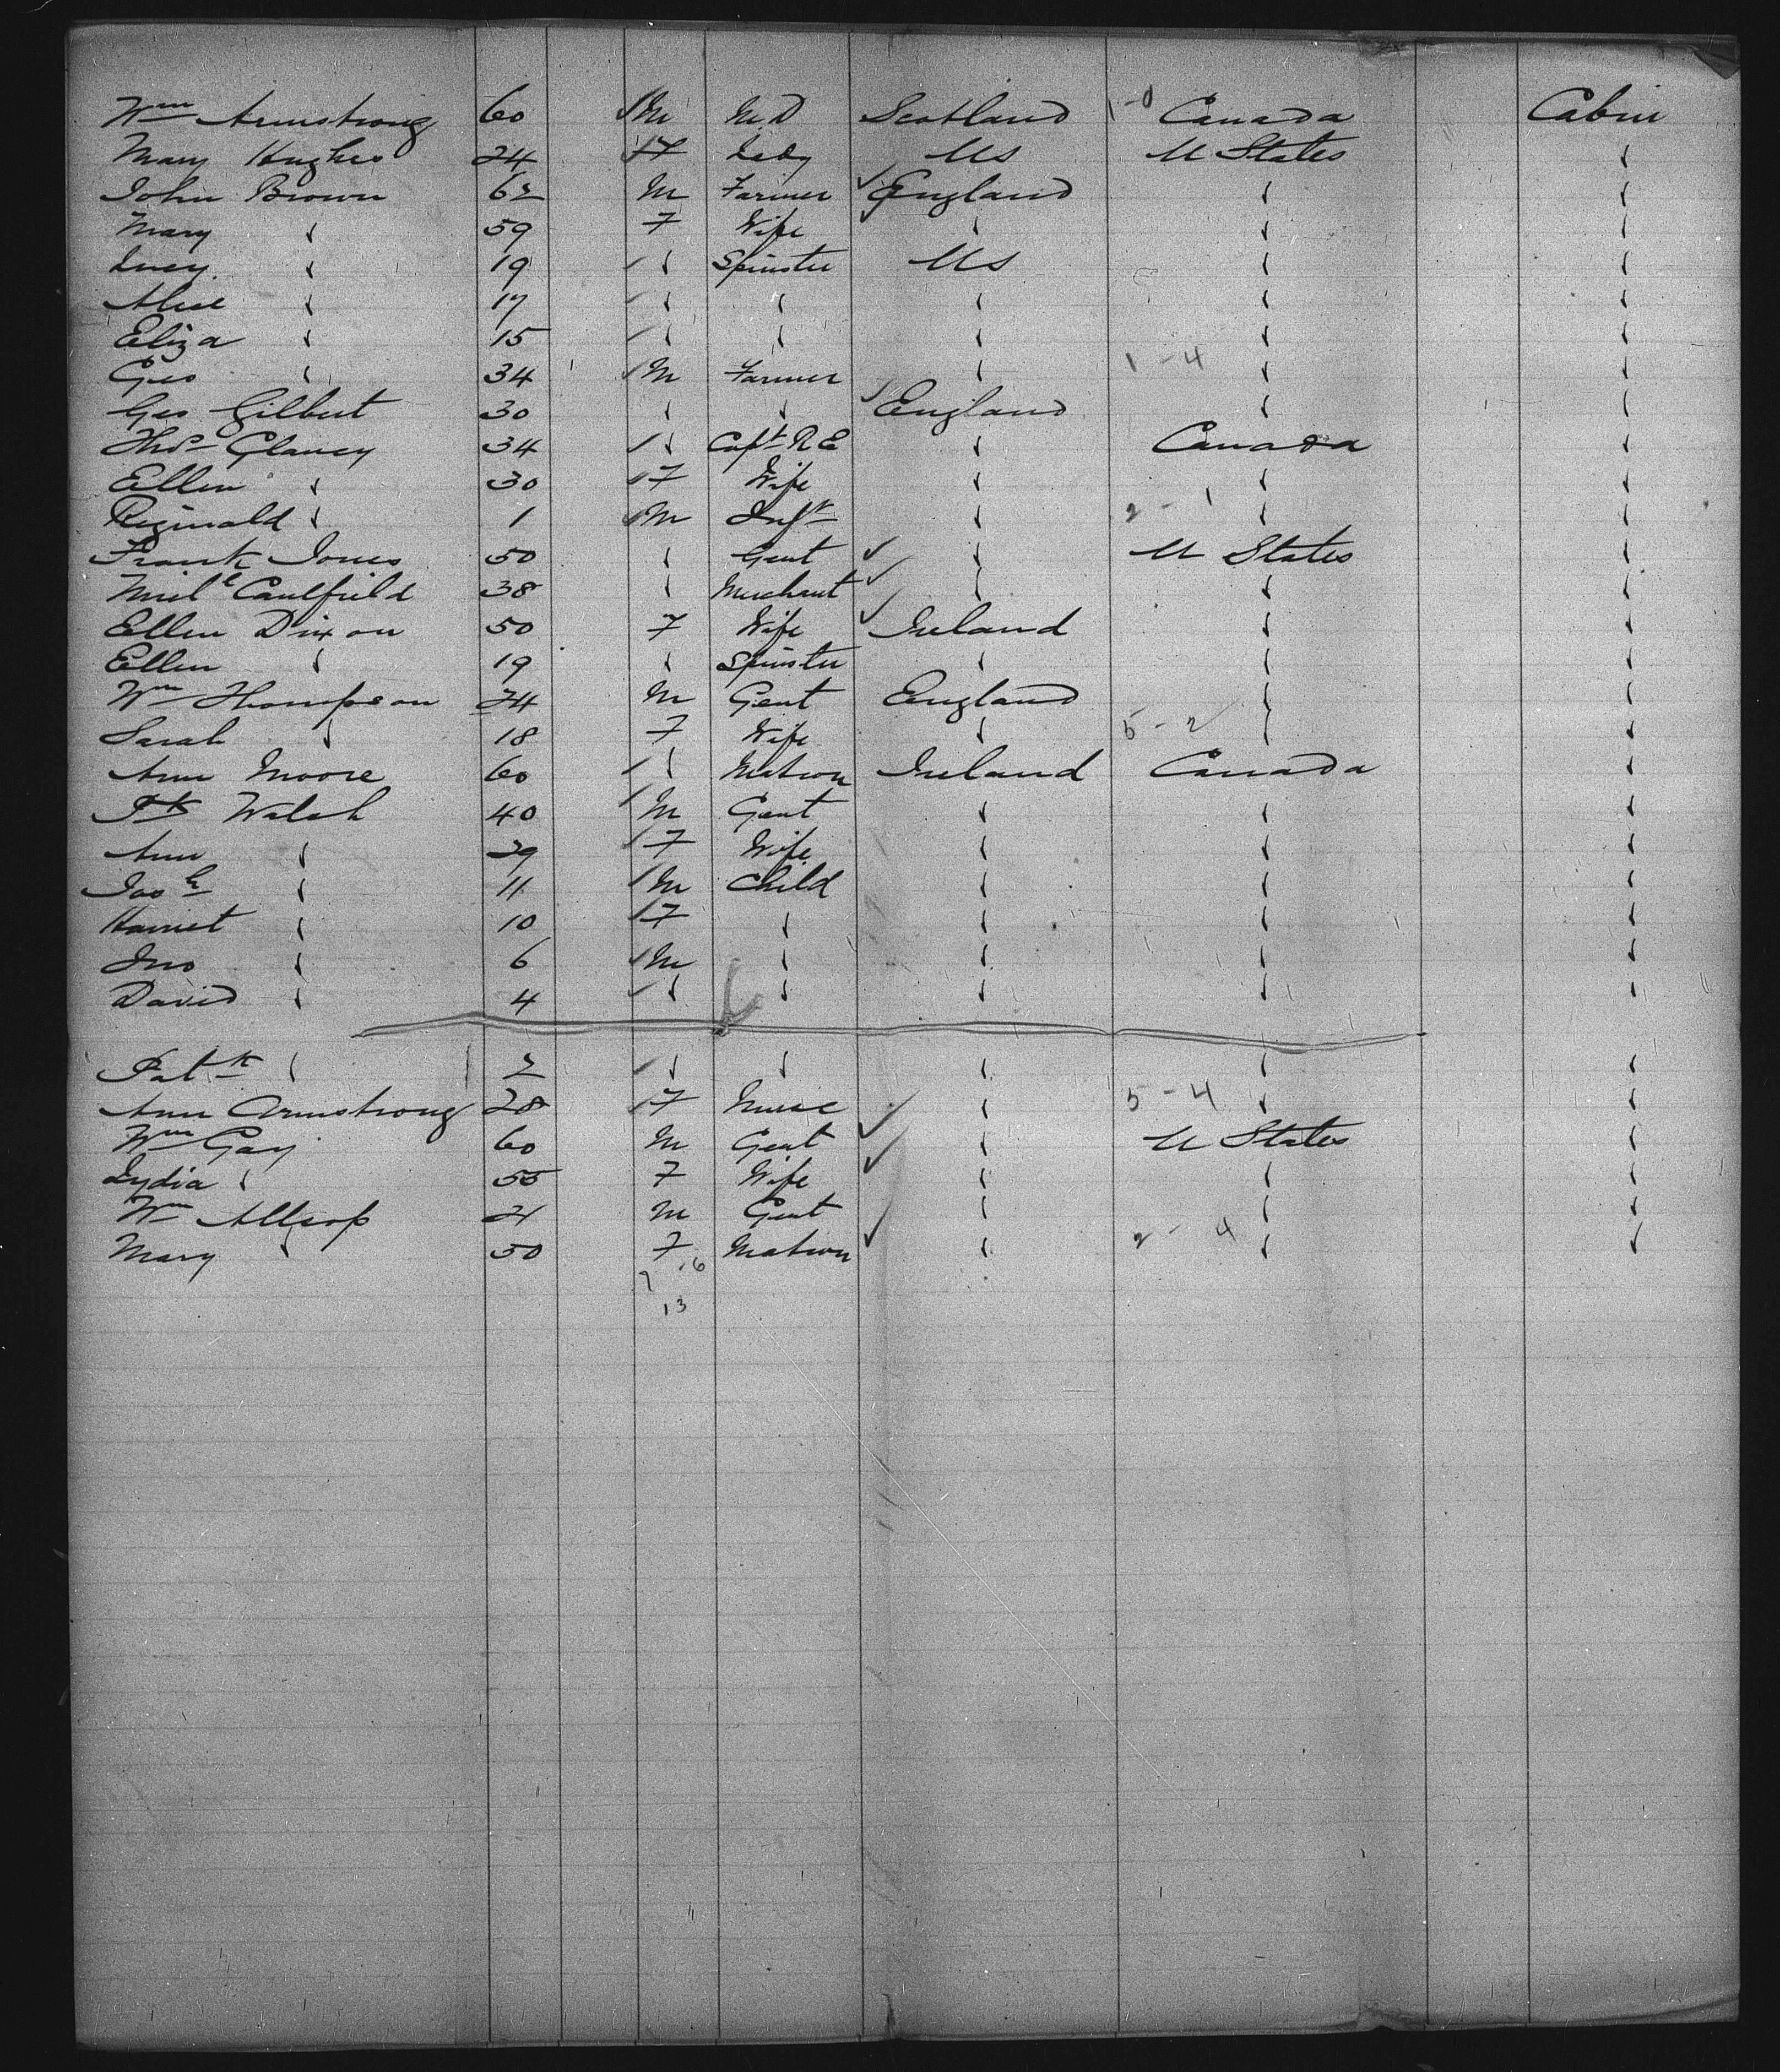 Wm Armstrong 60 M M.D Scotland 1-0 Canada Cabin
Mary Hughes 24 F Lady US U States "
John Brown 62 M Farmer England " "
Mary " 59 F Wife " " "
Lucy " 19 " Spinster US " "
Alice " 17 " " " " "
Eliza " 15 " " " " "
Geo " 34 M Farmer " 1-4 " "
Geo Gilbert 30 " " England " "
Thos Clancy 34 " Capt R E " Canada "
Ellen " 30 F Wife " " "
Reginald " 1 M Inft " 2-1 " "
Frank Jones 50 " Gent " U States "
Michl Caulfield 38 " Merchant " " "
Ellen Dixon 50 F Wife Ireland " "
Ellen " 19 " Spinster " " "
Wm Thompson 24 M Gent England " "
Sarah " 18 F Wife " 5-2 " "
Ann Moore 60 " Matron Ireland Canada "
Pk Walsh 40 M Gent " " "
Ann " 29 F Wife " " "
Josh " 11 M Child " " "
Harriet " 10 F " " " "
Jno " 6 M " " " "
David " 4 " " " " "
Patk " 2 " " " " "
Ann Armstrong 28 F Nurse " 5-4 " "
Wm Gay 60 M Gent " U States "
Lydia " 55 F Wife " " "
Wm Allsop 21 M Gent " " "
Mary " 50 F Matron " 2-4 " "
13